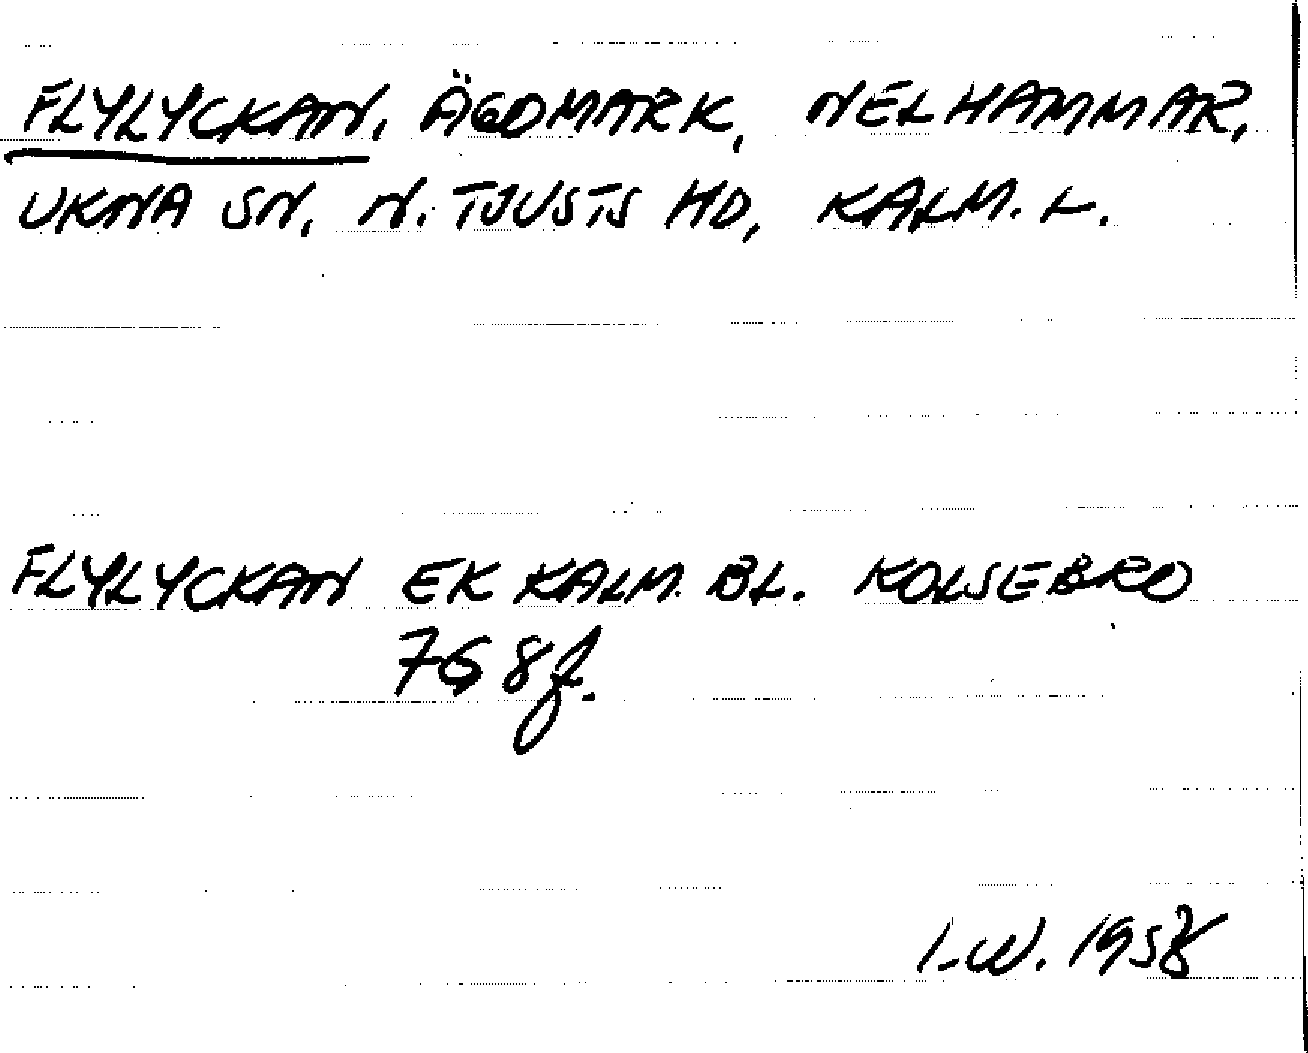 FLYLYCKAN, ÄGOMARK, NELHAMMAR,
UKNA SN, N. TJUSTS HD, KALM. L.
FLYLYCKAN EK KALM. BL. KOLSEBRO
7G 8f.
I.W. 1958